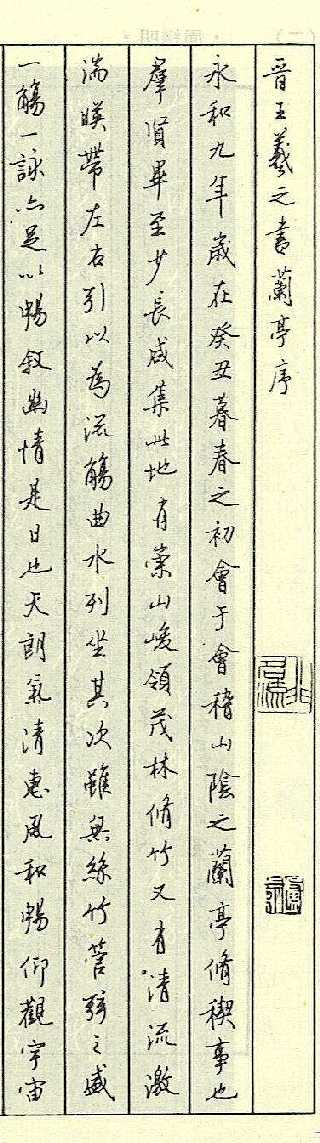 晉王羲之書蘭亭序
永和九年歲在癸丑暮春之初會于會稽山陰之蘭亭脩稧事也
羣賢畢至少長咸集此地有崇山峻領茂林脩竹又有清流激
湍暎帶左右引以為流觴曲水列坐其次雖無絲竹管弦之盛
一觴一詠亦足以暢敘幽情是日也天朗氣清惠風和暢仰觀宇宙